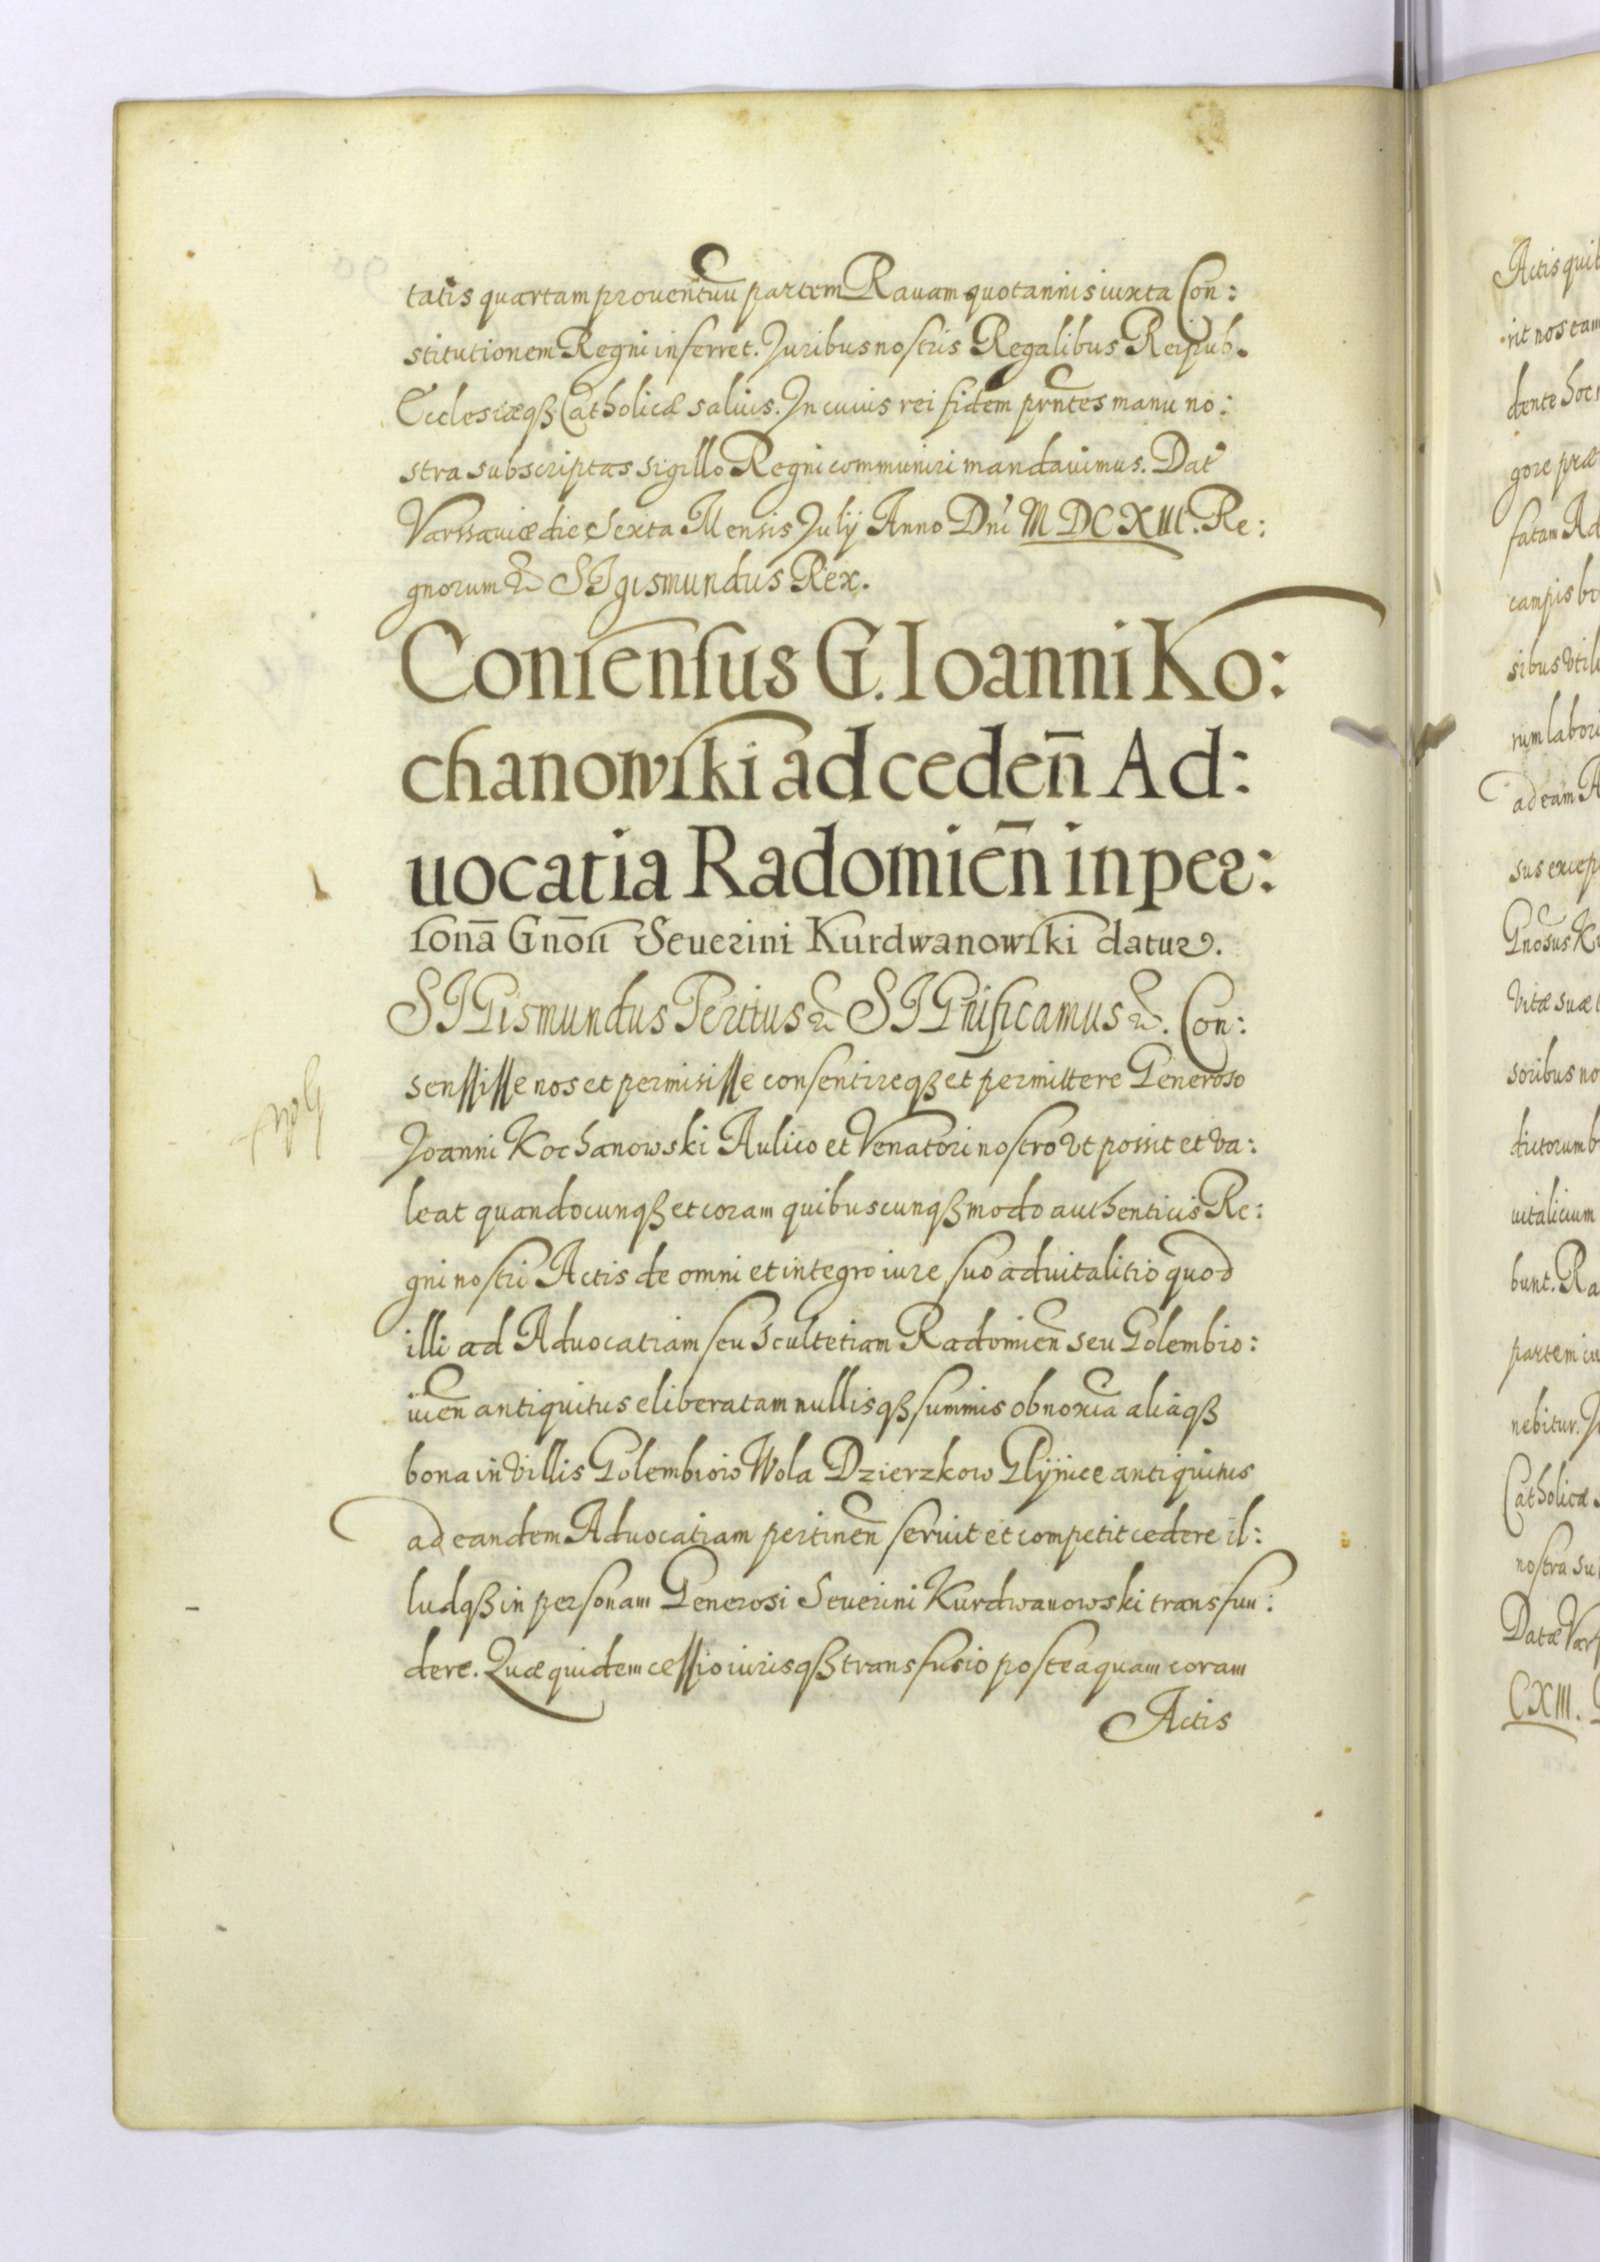 tatis quartam prouentuũ partem Rauam quotannis iuxta Con:
stitutionem Regni inferret. Juribus nostris Regalibus Reipub.
Ecclesiæqȝ Catholicæ saluis. In cuius rei fidem prñtes manu no:
stra subscriptas sigillo Regni communiri mandauimus. Dat
Varssauiæ die Sexta Mensis Julij Anno Dni MDCXIII. Re:
gnorum & SIgismundus Rex.
Consensus G. Ioanni Ko:
chanowski ad ceden̄ Ad:
uocatia Radomien̄ in per:
sonā Gnōsi Seuerini Kurdwanowski datur.
SIGismundus Tertius & SIGnificamus &. Con:
senssisse nos et permisisse consentireqȝ et permittere Generoso
Joanni Kochanowski Aulico et Venatori nostro vt possit et va:
leat quandocunqȝ et coram quibuscunqȝ modo authenticis Re:
gni nostri Actis de omni et integro iure suo aduitalitio quod
illi ad Aduocatiam seu Scultetiam Radomien̄ seu Golembio:
uien̄ antiquitus eliberatam nullisqȝ summis obnoxia aliaqȝ
bona in villis Golembiow Wola Dzierzkow Glijnice antiquitus
ad eandem Aduocatiam pertinen̄ seruit et competit cedere il:
ludqȝ in personam Generosi Seuerini Kurdwanowski transfun:
dere. Quæ quidem cessio iurisqȝ transfusio posteaquam coram
Actis
Actis quib
rit nos eam
dente hoc
gore præ
fatam Ad
campis bo
sibus vtil
rum labori
ad eam A
sus excep
Gnosus K
vitæ suæ
soribus no
dictorum b
uitalicium
bunt. Ra
partem iu
nebitur. J
Catholicæ
nostra su
Datæ Var
CXIII.